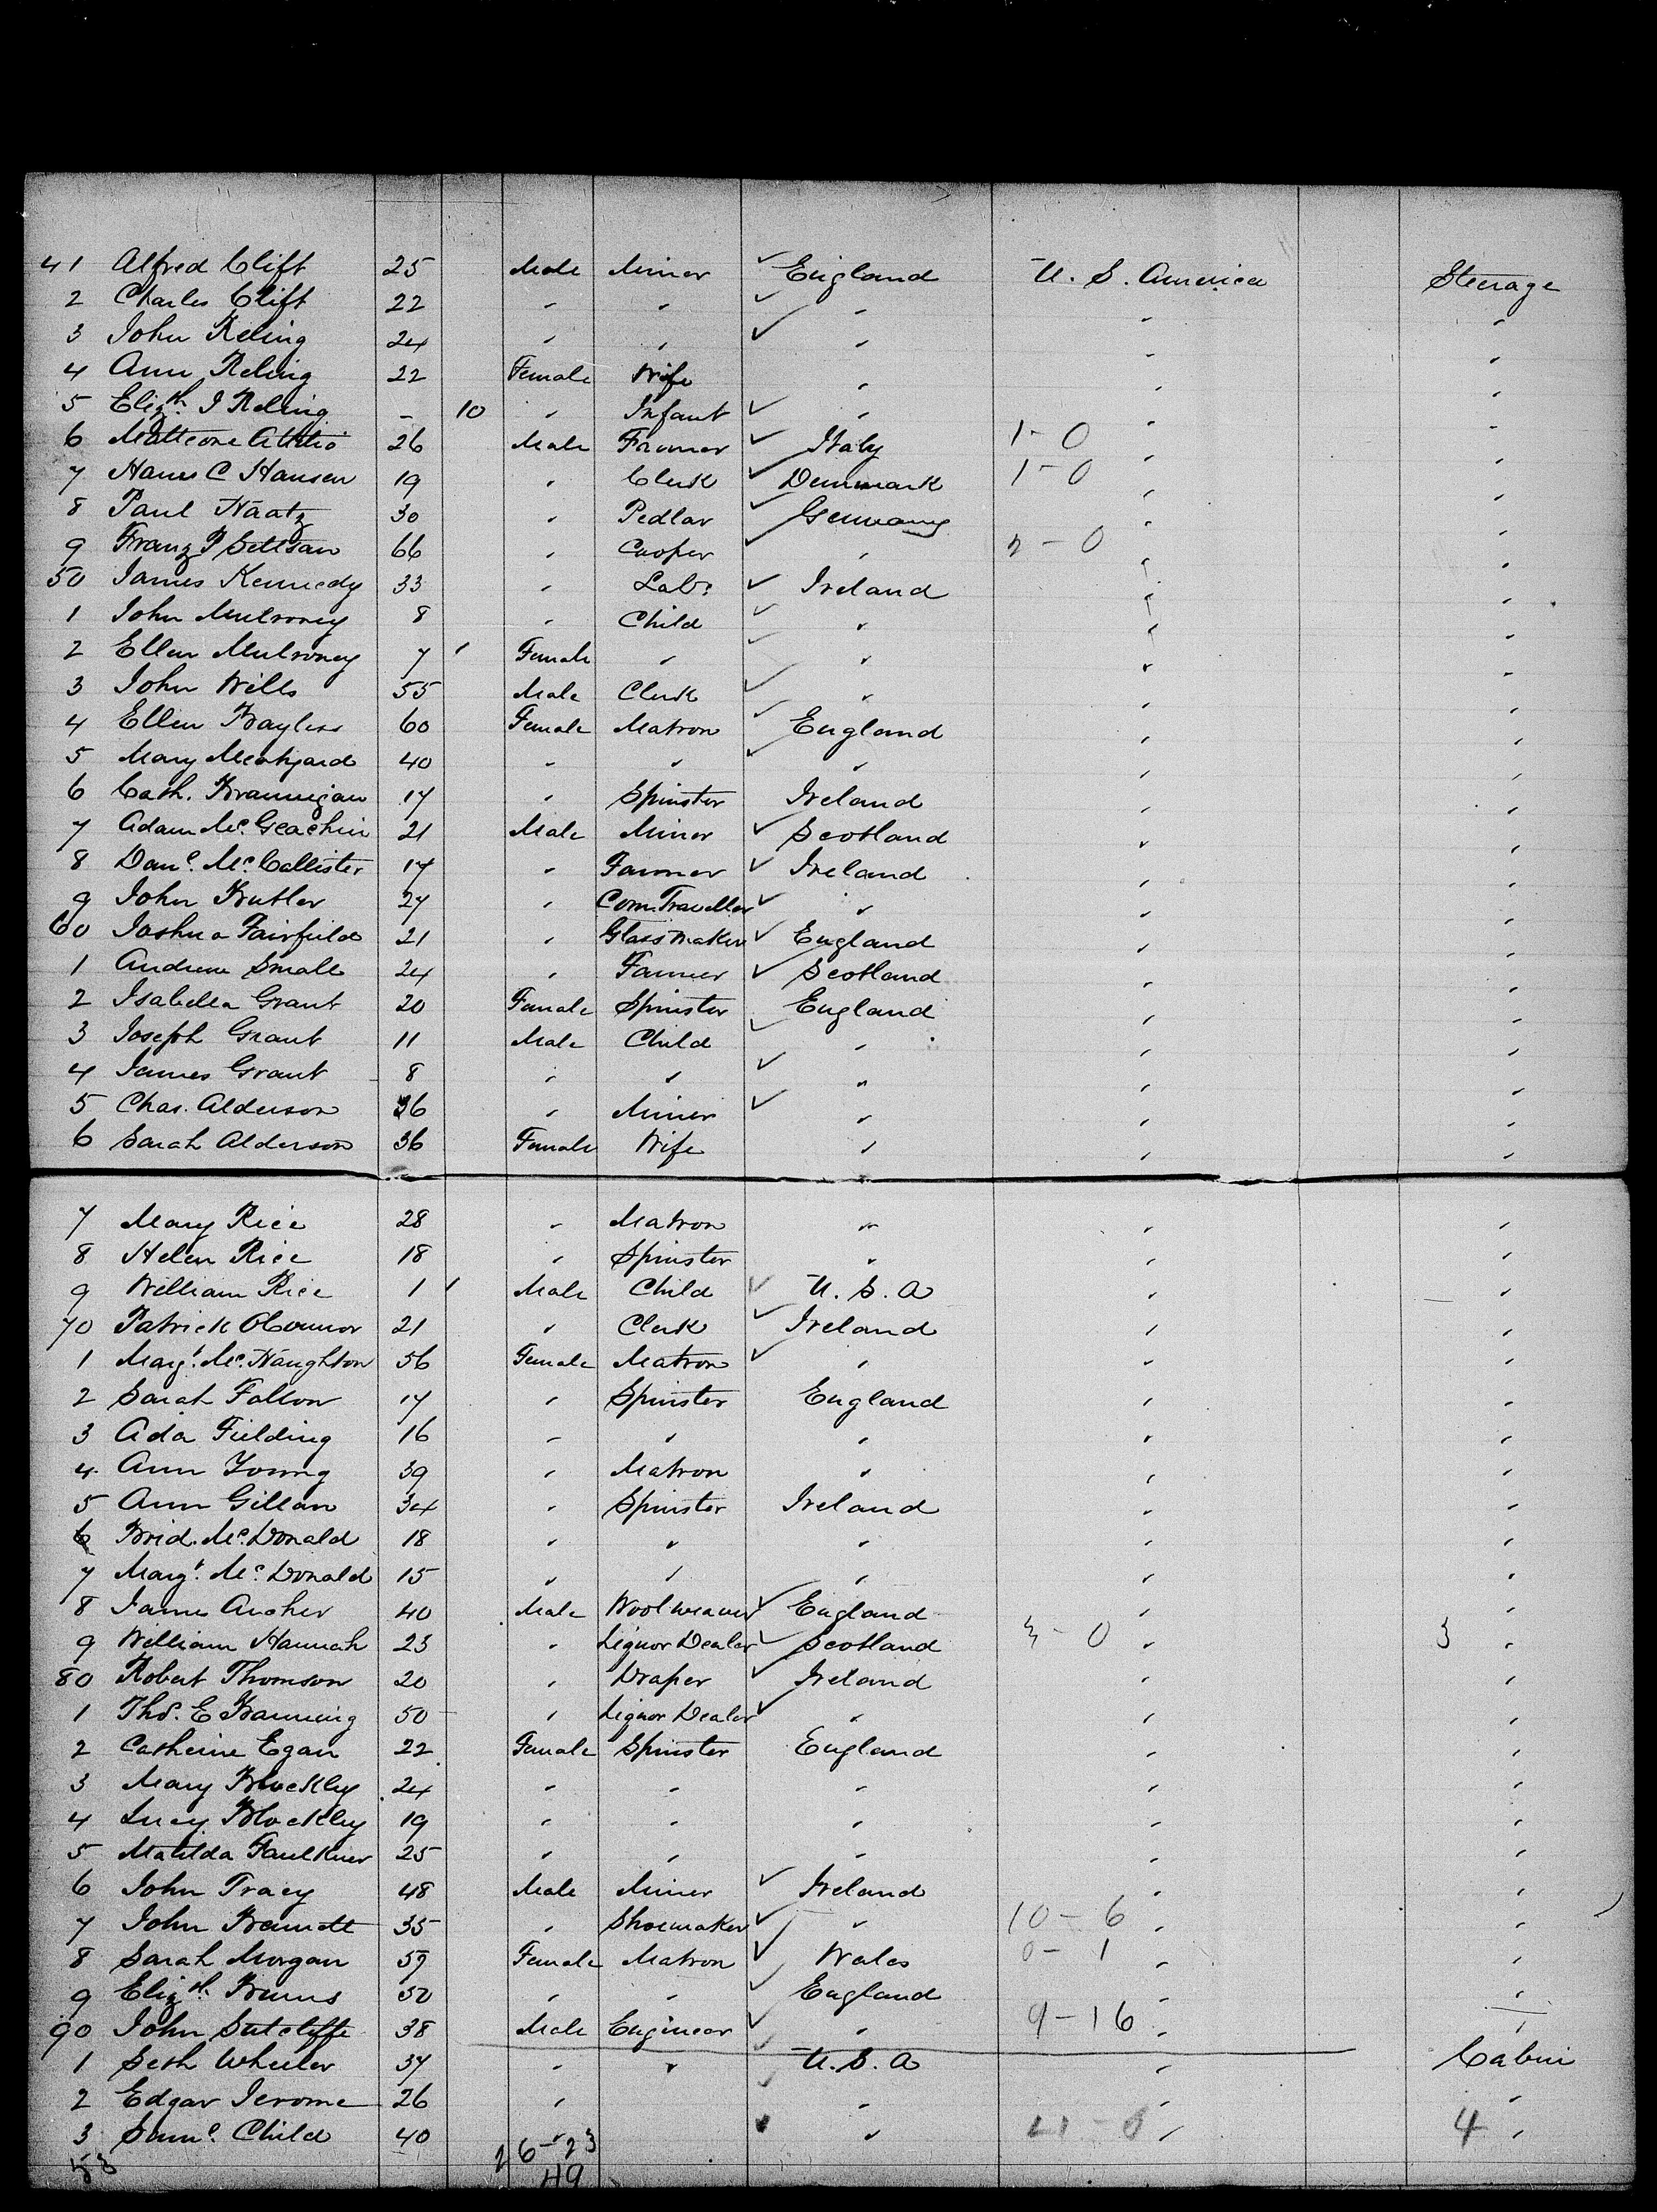 41 Alfred Clift 25 Male Miner ✓ England U. S. America Steerage
2 Charles Clift 22 " " ✓ " " "
3 John Reling 24 " " ✓ " " "
4 Ann Reling 22 Female Wife " " "
5 Elizth. J Reling - 10 " Infant ✓ " " "
6 Matteone Attitio 26 Male Farmer ✓ Italy 1-0 " "
7 Hans C Hansen 19 " Clerk ✓ Denmark 1-0 " "
8 Paul Naatz 30 " Pedlar ✓ Germany " "
9 Franz P 66 " Cooper ✓ " 2-0 " "
50 James Kennedy 33 " Labr. ✓ Ireland " "
1 John Mulroney 8 " Child ✓ " " "
2 Ellen Mulroney 7 ' Female " ✓ " " "
3 John Wills 55 Male Clerk ✓ " " "
4 Ellen Bayliss 60 Female Matron ✓ England " "
5 Mary Meatyard 40 " " ✓ " " "
6 Cath. Brannigan 17 " Spinster Ireland " "
7 Adam Mc.Geachin 21 Male Miner ✓ Scotland " "
8 Danl. Mc.Callister 17 " Farmer ✓ Ireland " "
9 John Butler 27 " Com.Traveller ✓ " " "
60 Joshua Fairfield 21 " Glassmaker ✓ England " "
1 Andrew Small 24 " Farmer ✓ Scotland " "
2 Isabella Grant 20 Female Spinster England " "
3 Joseph Grant 11 Male Child ✓ " " "
4 James Grant 8 " " ✓ " " "
5 Chas. Alderson 36 " Miner ✓ " " "
6 Sarah Alderson 36 Female Wife " " "
7 Mary Rice 28 " Matron " " "
8 Helen Rice 18 " Spinster " " "
9 William Rice 1 ' Male Child ✓ U. S. A " "
70 Patrick OConnor 21 " Clerk ✓ Ireland " "
1 Margt. Mc.Naughton 56 Female Matron ✓ " " "
2 Sarah Fallon 17 " Spinster England " "
3 Ada Fielding 16 " " " " "
4 Ann Young 39 " Matron " " "
5 Ann Gillan 34 " Spinster Ireland " "
6 Brid. Mc.Donald 18 " " " " "
7 Margt. Mc.Donald 15 " " " " "
8 James Archer 40 Male Woolweaver ✓ England " "
9 William Hannah 23 " Liquor Dealer ✓ Scotland 3-0 " 3 "
80 Robert Thomson 20 " Draper ✓ Ireland " "
1 Thos. E Banning 50 " Liquor Dealer ✓ " " "
2 Catherine Egan 22 Female Spinster England " "
3 Mary Blockley 24 " " " " "
4 Lucy Blockley 19 " " " " "
5 Matilda Faulkner 25 " " " " "
6 John Tracy 48 Male Miner ✓ Ireland " "
7 John 35 " Shoemaker ✓ " 10-6 " "
8 Sarah Morgan 59 Female Matron ✓ Wales 0-1 " "
9 Elizth. Burns 50 " " ✓ England " "
90 John Sutcliffe 38 Male Engineer ✓ " 9-16 " "
1 Seth Wheeler 37 " " ✓ U. S. A " Cabin
2 Edgar Jerome 26 " ✓ " " "
3 Saml. Child 40 " ✓ " " 4 "
53 26-23
49